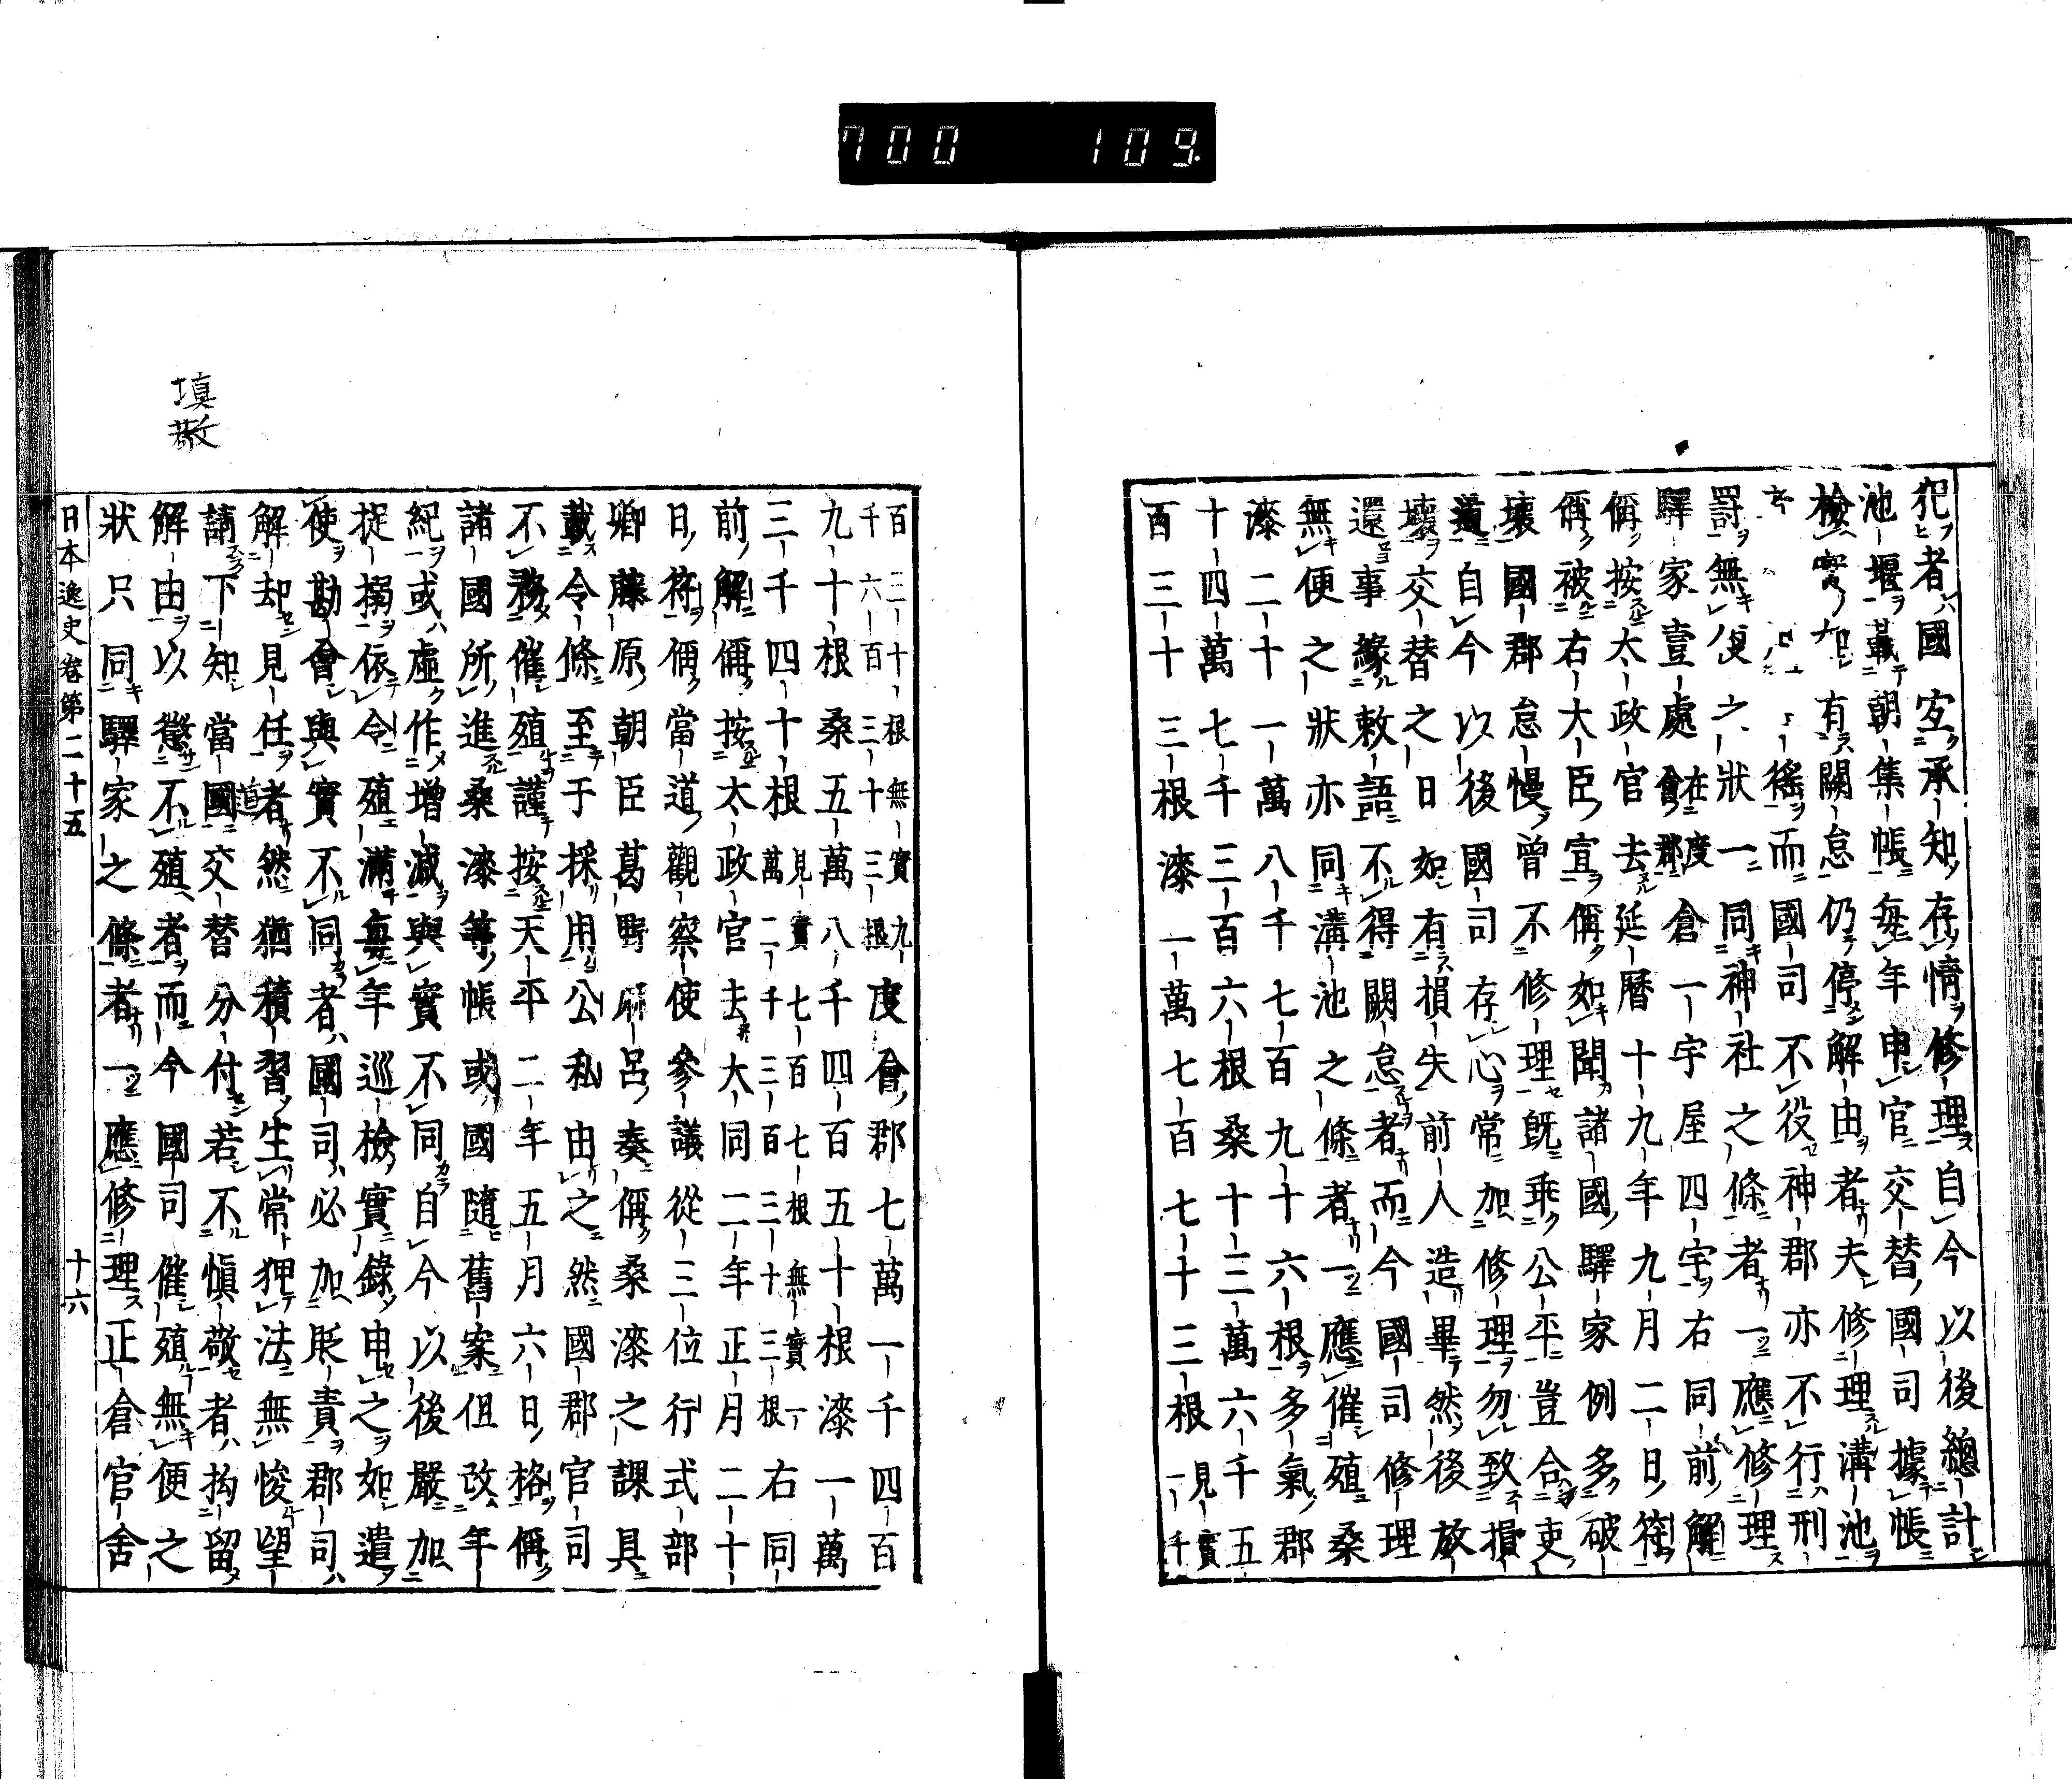 700 109
犯者國宜承知存情修理自今以後總計
池堰載朝集帳每年申官交替國司據帳
檢實知有闕怠仍停解由者夫修理溝池
徭而國司不役神郡亦不行刑
罸無便之狀一同神社之條者一應修理
驛家壹處在度會郡倉一宇屋四宇右同前解
偁按太政官去延曆十九年九月二日符
偁被右大臣宣偁如聞諸國驛家例多破
壞國郡怠慢曾不修理旣乖公平豈合吏
道自今以後國司存心常加修理勿致損
壞交替之日如有損失前人造畢然後放
還事緣敕語不得闕怠者而今國司修理
無便之狀亦同溝池之條者一應催殖桑
漆二十一萬八千七百九十六根多氣郡
十四萬七千三百六根桑十三萬六千五
百三十三根漆一萬七百七十三根見實一千
百二十根無實九千六百三十三根度會郡七萬一千四百
九十根桑五萬八千四百五十根漆一萬
三千四十根見實七百七根無實一萬二千三百三十三根右同
前解偁按太政官去大同二年正月二十
日符偁當道觀察使參議從三位行式部
卿藤原朝臣葛野麻呂奏偁桑漆之課具
載令條至于採用公私由之然國郡官司
不務催殖謹按天平二年五月六日格偁
諸國所進桑漆等帳或國隨舊案但改年
紀或虛作增減與實不同自今以後嚴加
捉搦依令殖滿每年巡檢實錄申之如遣
使勘會與實不同者國司必加貶責郡司
解却見任者然猶積習生常狎法無悛望
請下知當道國交替分付若不愼敬者拘留
解由以懲不殖者而今國司催殖無便之
狀只同驛家之條者一應修理正倉官舍
日本逸史卷第二十五 十六
填
敬